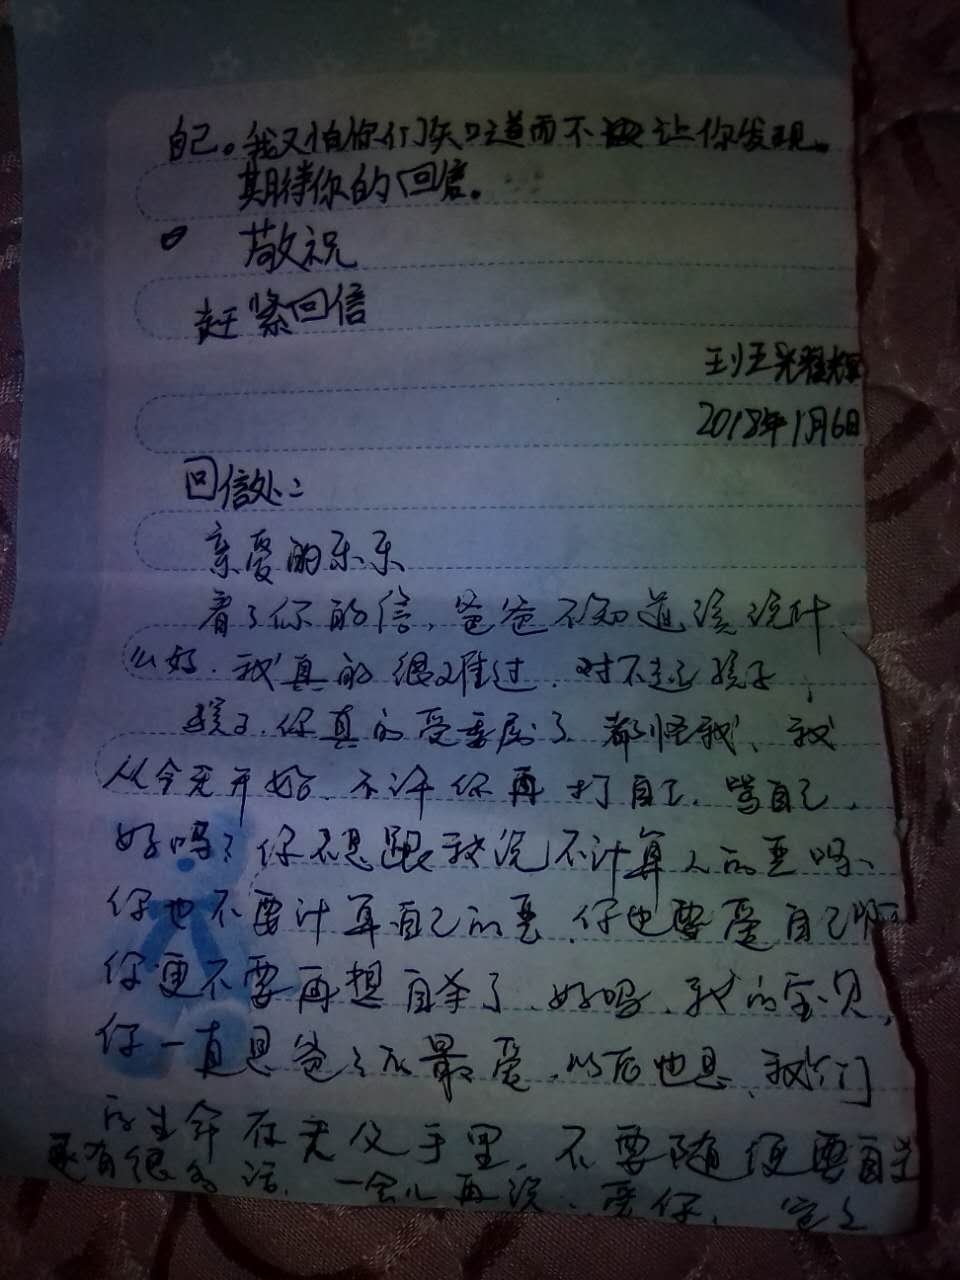 自己。我又怕你们知道而不让你发现。
期待你的回信。
敬祝
赶紧回信
2018年1月6日
回信处:
亲爱的乐乐
看了你的信,爸爸不知道该说什
么好.我真的很难过.对不起孩子,
孩子.你真的受委屈了.都怪我、我
从今天开始.不许你再打自己.骂自己.
好吗?你不是跟我说不计算人的恶吗、
你也不要计算自己的恶.你也要爱自己啊
你更不要再想自杀了、好吗、我的宝贝,
你一直是爸爸的最爱.以后也是、我们
的生命在天父手里.不要随便要自杀
还有很多话.一会儿再说.爱你.